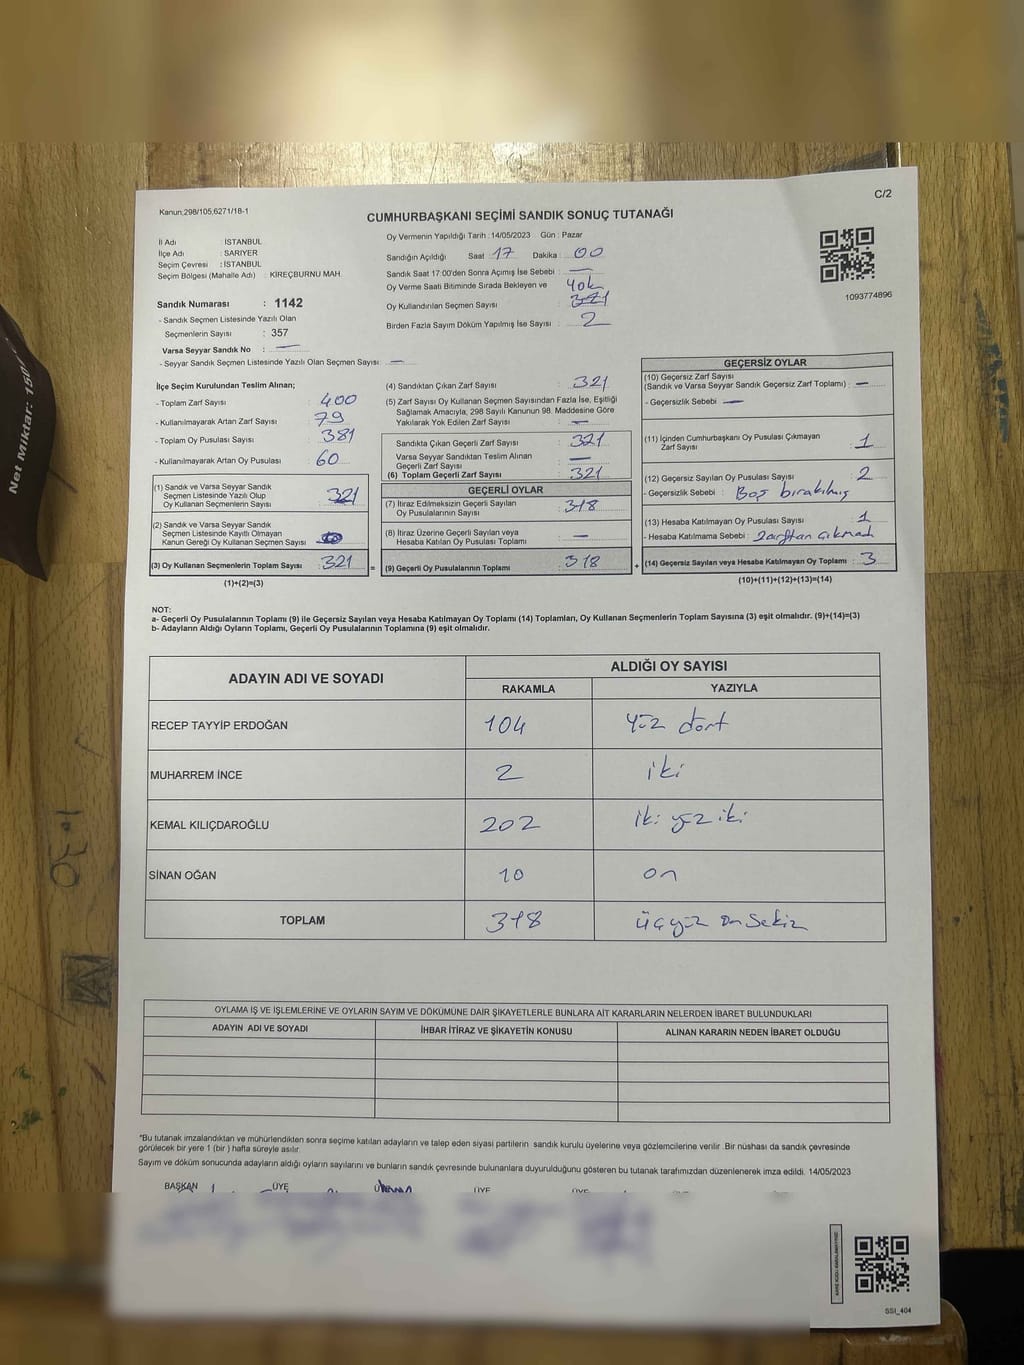 C/2
Kanun;298/105,6271/18-1
CUMHURBAŞKANI SEÇİMİ SANDIK SONUÇ TUTANAĞI
İl Adı : İSTANBUL
İlçe Adı : SARIYER
Seçim Çevresi : İSTANBUL
Seçim Bölgesi (Mahalle Adı) : KİREÇBURNU MAH.
Oy Vermenin Yapıldığı Tarih : 14/05/2023 Gün : Pazar
Sandığın Açıldığı Saat : 17 Dakika : 00
Sandık Saat 17:00'den Sonra Açımış İse Sebebi : —
Oy Verme Saati Bitiminde Sırada Bekleyen ve Yok
Oy Kullandırılan Seçmen Sayısı : 321
Birden Fazla Sayım Döküm Yapılmış İse Sayısı : 2
1093774896
Sandık Numarası : 1142
- Sandık Seçmen Listesinde Yazılı Olan
Seçmenlerin Sayısı : 357
Varsa Seyyar Sandık No : —
- Seyyar Sandık Seçmen Listesinde Yazılı Olan Seçmen Sayısı : —
İlçe Seçim Kurulundan Teslim Alınan;
- Toplam Zarf Sayısı : 400
- Kullanılmayarak Artan Zarf Sayısı : 79
- Toplam Oy Pusulası Sayısı : 381
- Kullanılmayarak Artan Oy Pusulası : 60
(1) Sandık ve Varsa Seyyar Sandık
Seçmen Listesinde Yazılı Olup
Oy Kullanan Seçmenlerin Sayısı : 321
(2) Sandık ve Varsa Seyyar Sandık
Seçmen Listesinde Kayıtlı Olmayan
Kanun Gereği Oy Kullanan Seçmen Sayısı :
(3) Oy Kullanan Seçmenlerin Toplam Sayısı : 321 =
(1)+(2)=(3)
(4) Sandıktan Çıkan Zarf Sayısı : 321
(5) Zarf Sayısı Oy Kullanan Seçmen Sayısından Fazla İse, Eşitliği
Sağlamak Amacıyla, 298 Sayılı Kanunun 98. Maddesine Göre
Yakılarak Yok Edilen Zarf Sayısı : —
Sandıkta Çıkan Geçerli Zarf Sayısı : 321
Varsa Seyyar Sandıktan Teslim Alınan
Geçerli Zarf Sayısı : —
(6) Toplam Geçerli Zarf Sayısı : 321
GEÇERLİ OYLAR
(7) İtiraz Edilmeksizin Geçerli Sayılan
Oy Pusulalarının Sayısı : 318
(8) İtiraz Üzerine Geçerli Sayılan veya
Hesaba Katılan Oy Pusulası Toplamı : —
(9) Geçerli Oy Pusulalarının Toplamı : 318 +
GEÇERSİZ OYLAR
(10) Geçersiz Zarf Sayısı
(Sandık ve Varsa Seyyar Sandık Geçersiz Zarf Toplamı) : —
- Geçersizlik Sebebi : —
(11) İçinden Cumhurbaşkanı Oy Pusulası Çıkmayan
Zarf Sayısı : 1
(12) Geçersiz Sayılan Oy Pusulası Sayısı : 2
- Geçersizlik Sebebi : Boş bırakılmış
(13) Hesaba Katılmayan Oy Pusulası Sayısı : 1
- Hesaba Katılmama Sebebi : Zarftan çıkmadı
(14) Geçersiz Sayılan veya Hesaba Katılmayan Oy Toplamı : 3
(10)+(11)+(12)+(13)=(14)
NOT:
a- Geçerli Oy Pusulalarının Toplamı (9) ile Geçersiz Sayılan veya Hesaba Katılmayan Oy Toplamı (14) Toplamları, Oy Kullanan Seçmenlerin Toplam Sayısına (3) eşit olmalıdır. (9)+(14)=(3)
b- Adayların Aldığı Oyların Toplamı, Geçerli Oy Pusulalarının Toplamına (9) eşit olmalıdır.
ADAYIN ADI VE SOYADI ALDIĞI OY SAYISI
RAKAMLA YAZIYLA
RECEP TAYYİP ERDOĞAN 104 Yüz dört
MUHARREM İNCE 2 iki
KEMAL KILIÇDAROĞLU 202 iki yüz iki
SİNAN OĞAN 10 on
TOPLAM 318 üçyüz on sekiz
OYLAMA İŞ VE İŞLEMLERİNE VE OYLARIN SAYIM VE DÖKÜMÜNE DAİR ŞİKAYETLERLE BUNLARA AİT KARARLARIN NELERDEN İBARET BULUNDUKLARI
ADAYIN ADI VE SOYADI İHBAR İTİRAZ VE ŞİKAYETİN KONUSU ALINAN KARARIN NEDEN İBARET OLDUĞU
*Bu tutanak imzalandıktan ve mühürlendikten sonra seçime katılan adayların ve talep eden siyasi partilerin sandık kurulu üyelerine veya gözlemcilerine verilir. Bir nüshası da sandık çevresinde
görülecek bir yere 1 (bir ) hafta süreyle asılır.
Sayım ve döküm sonucunda adayların aldığı oyların sayılarını ve bunların sandık çevresinde bulunanlara duyurulduğunu gösteren bu tutanak tarafımızdan düzenlenerek imza edildi. 14/05/2023
BAŞKAN ÜYE ÜYE ÜYE
SSI_404
Net Miktar: 150